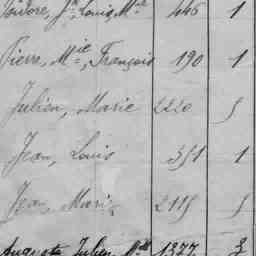 Isidore, Jn Louis, Mie 446 1
Pierre, Mie, François 190 1
Julien, Marie 2220 5
Jean, Louis 351 1
Jean, Marie 2175 5
Auguste Julien Mie 1377 3